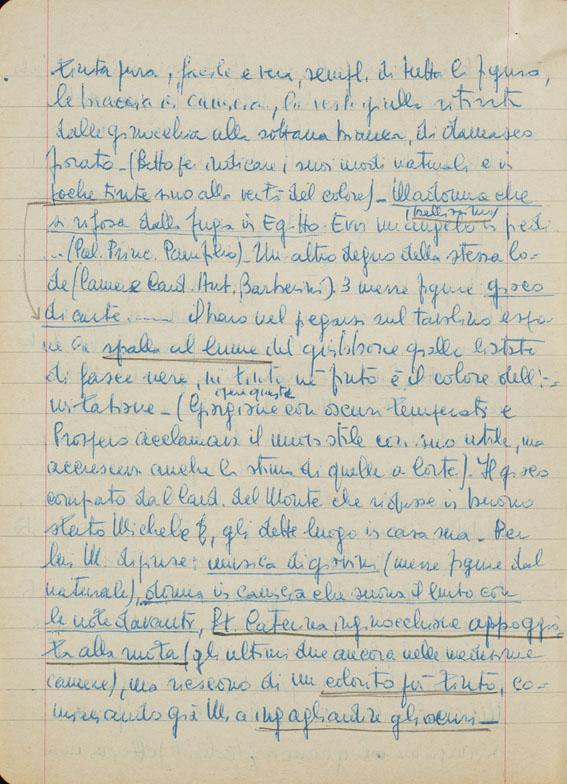 tinta pura, facile e vera, sempl. di tutta la figura,
le braccia in camicia, la veste gialla ritirata
dalle ginocchia alla sottana bianca, di damasco
fiorato – (Detto per indicare i suoi modi naturali e in
poche tinte sino alla verità del colore) – Madonna che
si riposa dalla fuga in Egitto. Evvi un angelo in piedi
(bellissimo)
... (Pal. Princ. Pamphilo) – Un altro degno della stessa lo-
de (Camere Card. Ant. Barberini). 3 mezze figure gioco
di carte ....... il baro nel tavolino
spalla al lume del giubbone giallo listato
di fasce nere, né tinto né finto è il colore dell'i-
mitazione – (Giorgione con oscuri temperati e
(in queste)
Prospero acclamava il nuovo stile con suo utile, ma
accresceva anche la stima di quello a Corte). Il gioco
comprato dal Card. del Monte che ridusse in buono
stato Michele e gli dette luogo in casa sua – Per
lui M. dipinse: musica di giovini (mezze figure dal
naturale), donna in camicia che suona il liuto con
le note davanti, St. Caterina inginocchione appoggia
ta alla rota (gli ultimi due ancora nelle medesime
camere), ma riescono di un colorito più tinto, co-
minciando già M. a ingagliardire gli oscuri –